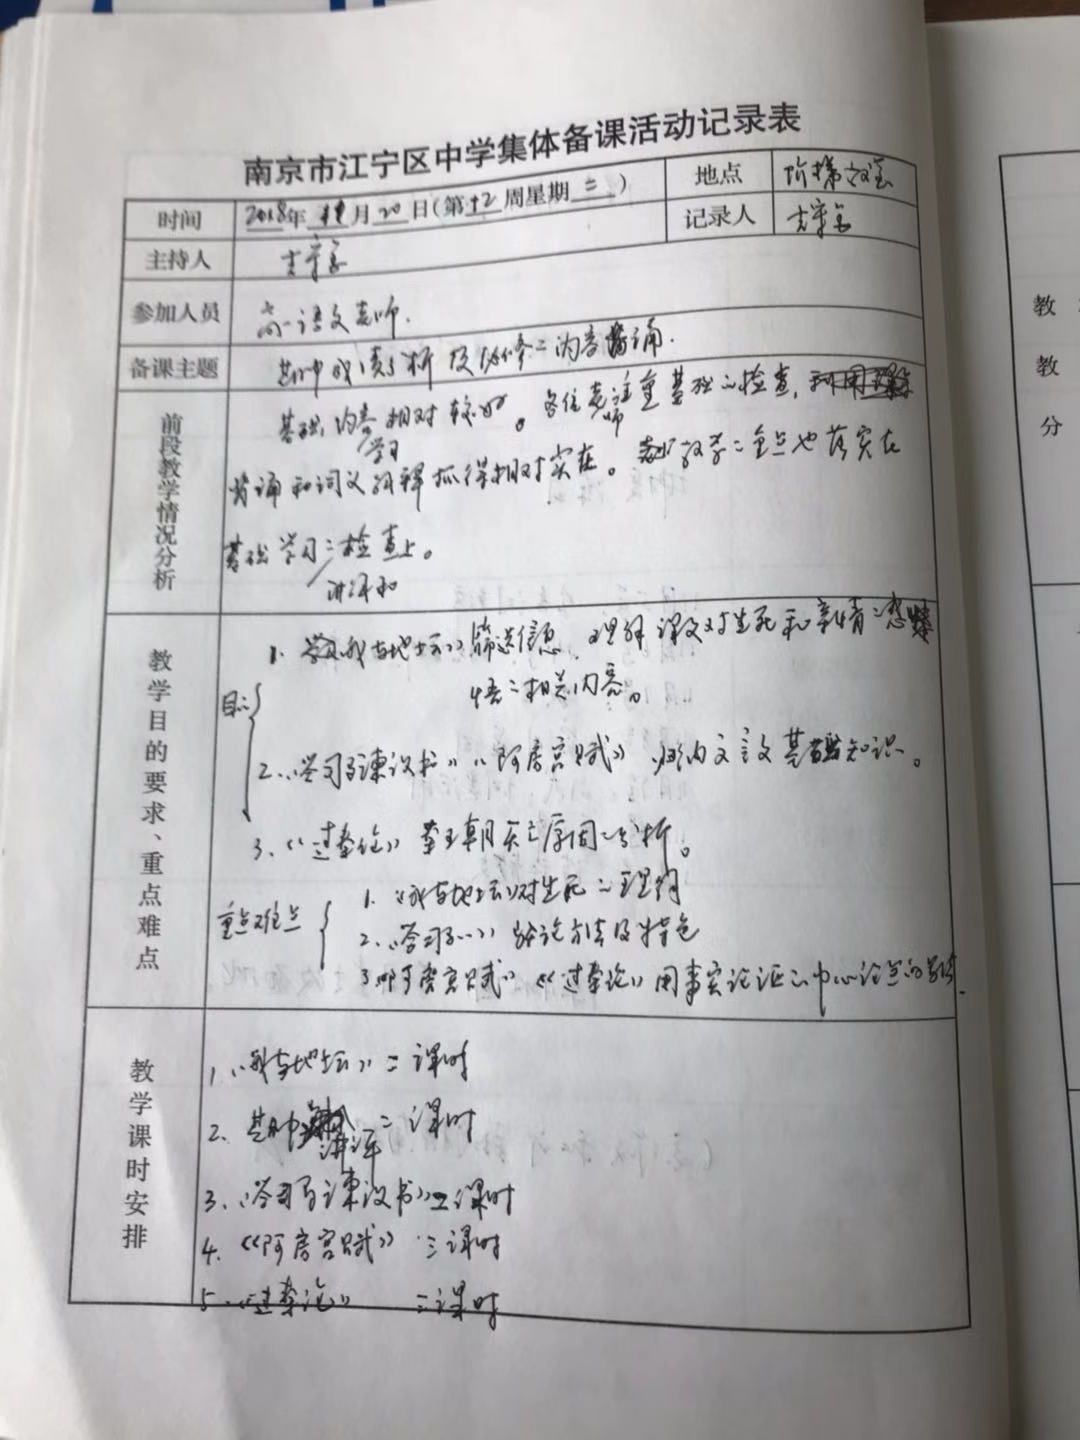 南京市江宁区中学集体备课活动记录表
时间 2018年 11月 20日(第12周星期二) 地点 阶梯教室
记录人
主持人
参加人员 高一语文老师.
备课主题 期中成绩分析及必修二内容背诵.
前段教学情况分析
基础内容相对较好。各位老师注重基础的检查,利用
学习
背诵和词义解释抓得相对实在。教学二重点也落实在
基础学习二检查上。
讲评和
教学目的要求、重点难点
目:
1.《我与地坛》筛选信息,理解课文对生死和亲情二感
悟二相关内容。
2.《答司马谏议书》《阿房宫赋》归纳文言文基础知识。
3.《过秦论》秦王朝灭亡原因二分析。
重点难点
1.《我与地坛》对生死二理解
2.《答司马…》辩论方法及特色
3.《阿房宫赋》《过秦论》用事实论证二中心论点的写法.
教学课时安排
1、《我与地坛》二课时
2、期中讲评 二课时
3、《答司马谏议书》二课时
4、《阿房宫赋》三课时
5、《过秦论》三课时
教
教
分